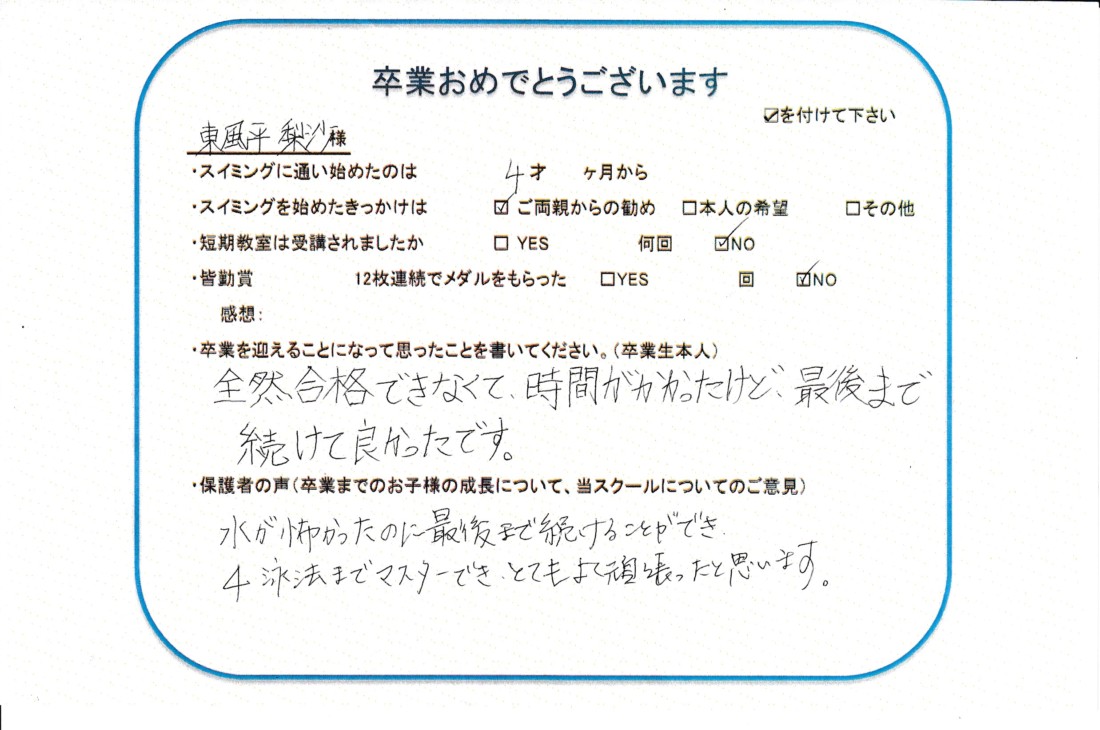 卒業おめでとうございます
☑を付けて下さい
東風平 梨沙様
・スイミングに通い始めたのは 4才 ヶ月から
・スイミングを始めたきっかけは ☑ご両親からの勧め □本人の希望 □その他
・短期教室は受講されましたか □ YES 何回 ☑NO
・皆勤賞 12枚連続でメダルをもらった □YES 回 ☑NO
感想：
・卒業を迎えることになって思ったことを書いてください。（卒業生本人）
全然合格できなくて、時間がかかったけど、最後まで
続けて良かったです。
・保護者の声（卒業までのお子様の成長について、当スクールについてのご意見）
水が怖かったのに最後まで続けることができ、
4泳法までマスターでき、とてもよく頑張ったと思います。